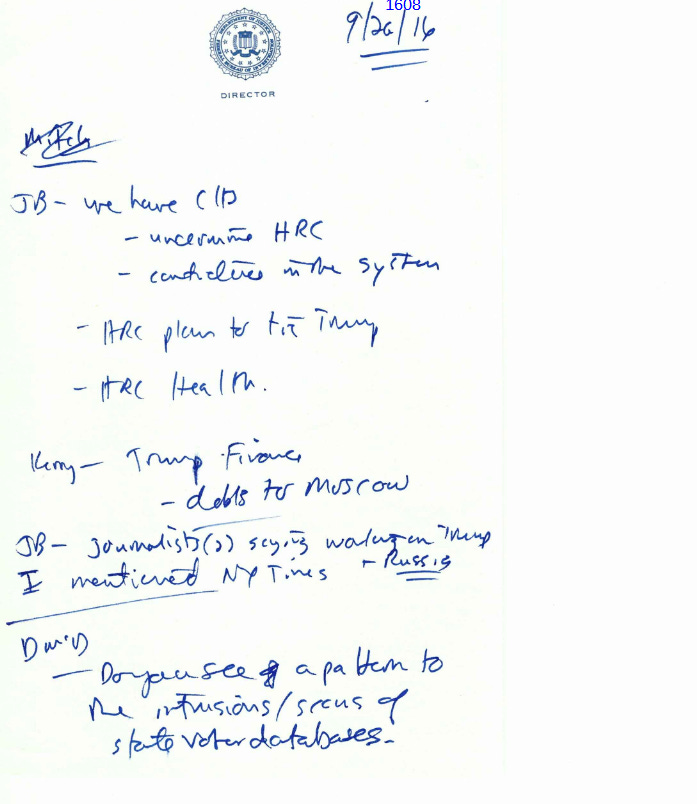 1608
9/26/16
DEPARTMENT OF JUSTICE
FEDERAL BUREAU OF INVESTIGATION
DIRECTOR
JB - we have CID
- undermine HRC
- candidates in the system
- HRC plan to tie Trump
- HRC Health.
Kerry - Trump Finance
- debts to Moscow
JB - journalists (2) saying working on Trump
+ Russia
I mentioned NY Times
- Do you see a pattern to
the intrusions/scans of
state voter databases.